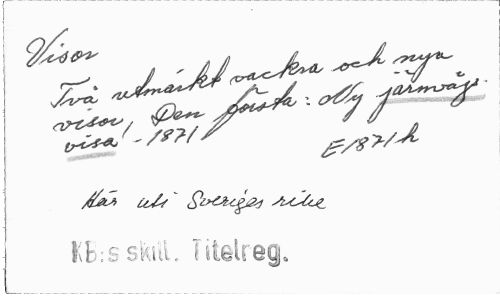 Visor
Två utmärkt vackra och nya
visor, Den första: Ny järnvägs-
visa! - 1871
E1871h
Här uti Sveriges rike
KB:s skill. Titelreg.